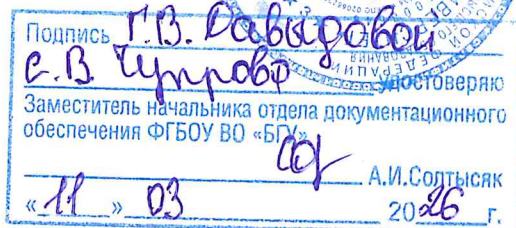 Подпись Г.В. Давыдовой
С.В. Чупровф
удостоверяю
Заместитель начальника отдела документационного
обеспечения ФГБОУ ВО «БГУ»
А.И.Солтысяк
« 11 » 03 2026 г.